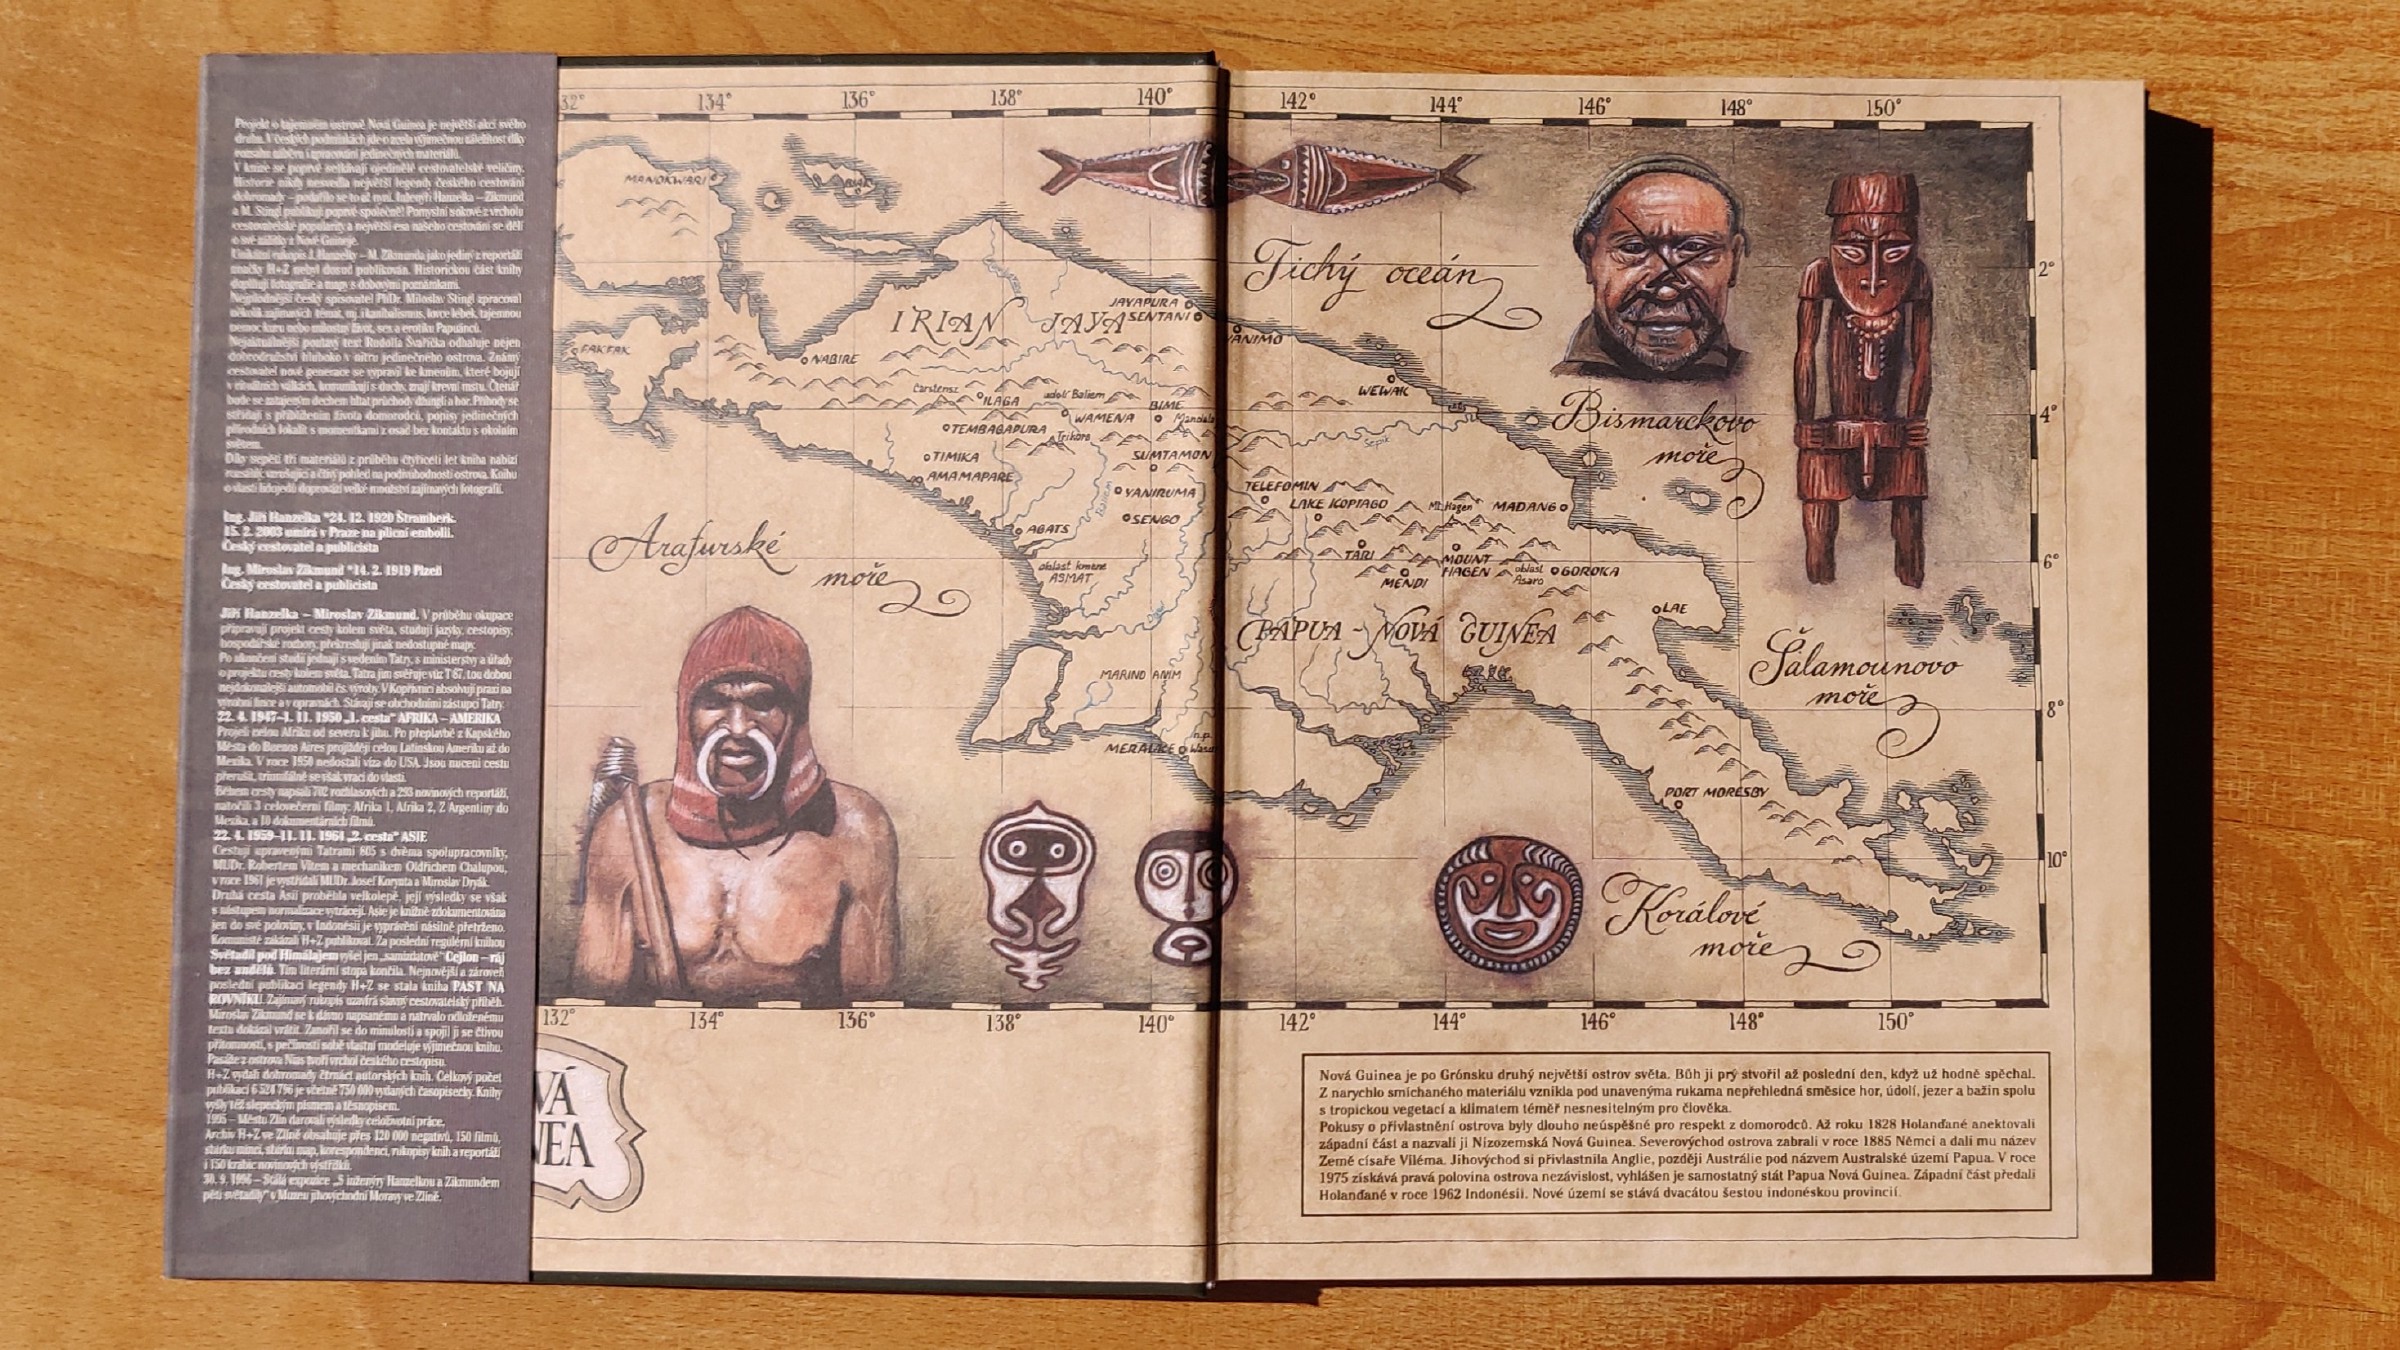 Projekt o tajemném ostrově Nová Guinea je největší akcí svého
druhu. V českých podmínkách jde o zcela výjimečnou záležitost díky
rozsahu záběru i zpracování jedinečných materiálů.
V knize se poprvé setkávají ojedinělé cestovatelské veličiny.
Historie nikdy nesvedla největší legendy českého cestování
dohromady – podařilo se to až nyní. Inženýři Hanzelka – Zikmund
a M. Stingl publikují poprvé společně! Pomyslní sokové z vrcholu
cestovatelské popularity a největší esa našeho cestování se dělí
o své zážitky z Nové Guineje.
Unikátní rukopis J. Hanzelky – M. Zikmunda jako jediný z reportáží
značky H+Z nebyl dosud publikován. Historickou část knihy
doplňují fotografie a mapy s dobovými poznámkami.
Nejplodnější český spisovatel PhDr. Miloslav Stingl zpracoval
několik zajímavých témat, mj. i kanibalismus, lovce lebek, tajemnou
nemoc kuru nebo milostný život, sex a erotiku Papuánců.
Nejaktuálnější poutavý text Rudolfa Švaříčka odhaluje nejen
dobrodružství hluboko v nitru jedinečného ostrova. Známý
cestovatel nové generace se vypravil ke kmenům, které bojují
v rituálních válkách, komunikují s duchy, znají krevní mstu. Čtenář
bude se zatajeným dechem hltat průchody džunglí a hor. Příhody se
střídají s přiblížením života domorodců, popisy jedinečných
přírodních lokalit s momentkami z osad bez kontaktu s okolním
světem.
Díky sepětí tří materiálů z průběhu čtyřiceti let kniha nabízí
rozsáhlý, vzrušující a čtivý pohled na podivuhodnosti ostrova. Knihu
o vlasti lidojedů doprovází velké množství zajímavých fotografií.
Ing. Jiří Hanzelka *24. 12. 1920 Štramberk.
15. 2. 2003 umírá v Praze na plicní embolii.
Český cestovatel a publicista
Ing. Miroslav Zikmund *14. 2. 1919 Plzeň
Český cestovatel a publicista
Jiří Hanzelka – Miroslav Zikmund. V průběhu okupace
připravují projekt cesty kolem světa, studují jazyky, cestopisy,
hospodářské rozbory, překreslují jinak nedostupné mapy.
Po ukončení studií jednají s vedením Tatry, s ministerstvy a úřady
o projektu cesty kolem světa. Tatra jim svěřuje vůz T 87, tou dobou
nejdokonalejší automobil čs. výroby. V Kopřivnici absolvují praxi na
výrobní lince a v opravnách. Stávají se obchodními zástupci Tatry.
22. 4. 1947–1. 11. 1950 „1. cesta“ AFRIKA – AMERIKA
Projeli celou Afriku od severu k jihu. Po přeplavbě z Kapského
Města do Buenos Aires projíždějí celou Latinskou Ameriku až do
Mexika. V roce 1950 nedostali víza do USA. Jsou nuceni cestu
přerušit, triumfálně se však vrací do vlasti.
Během cesty napsali 702 rozhlasových a 293 novinových reportáží,
natočili 3 celovečerní filmy: Afrika 1, Afrika 2, Z Argentiny do
Mexika, a 10 dokumentárních filmů.
22. 4. 1959–11. 11. 1964 „2. cesta“ ASIE
Cestují upravenými Tatrami 805 s dvěma spolupracovníky,
MUDr. Robertem Vítem a mechanikem Oldřichem Chalupou,
v roce 1961 je vystřídali MUDr. Josef Koryta a Miroslav Dryák.
Druhá cesta Asií proběhla velkolepě, její výsledky se však
s nástupem normalizace vytrácejí. Asie je knižně zdokumentována
jen do své poloviny, v Indonésii je vyprávění násilně přetrženo.
Komunisté zakázali H+Z publikovat. Za poslední regulérní knihou
Světadíl pod Himálajem vyšel jen „samizdatově“ Cejlon – ráj
bez andělů. Tím literární stopa končila. Nejnovější a zároveň
poslední publikací legendy H+Z se stala kniha PAST NA
ROVNÍKU. Zajímavý rukopis uzavírá slavný cestovatelský příběh.
Miroslav Zikmund se k dávno napsanému a natrvalo odloženému
textu dokázal vrátit. Zanořil se do minulosti a spojil ji se čtivou
přítomností, s pečlivostí sobě vlastní modeluje výjimečnou knihu.
Pasáže z ostrova Nias tvoří vrchol českého cestopisu.
H+Z vydali dohromady čtrnáct autorských knih. Celkový počet
publikací 6 524 796 je včetně 750 000 vydaných časopisecky. Knihy
vyšly též slepeckým písmem a těsnopisem.
1995 – Městu Zlín darovali výsledky celoživotní práce.
Archiv H+Z ve Zlíně obsahuje přes 120 000 negativů, 150 filmů,
sbírku mincí, sbírku map, korespondenci, rukopisy knih a reportáží
i 150 krabic novinových výstřižků.
30. 9. 1996 – Stálá expozice „S inženýry Hanzelkou a Zikmundem
pěti světadíly“ v Muzeu jihovýchodní Moravy ve Zlíně.
32° 134° 136° 138° 140° 142° 144° 146° 148° 150°
MANOKWARI
BIAK
Tichý oceán
2°
JAYAPURA
SENTANI
IRIAN JAYA
VANIMO
FAKFAK
NABIRE
Carstensz
ILAGA
údolí Baliem
WAMENA
BIME
Mandala
WEWAK
Bismarckovo
moře
4°
TEMBAGAPURA
Trikora
Sepik
TIMIKA
SUMTAMON
AMAMAPARE
YANIRUMA
TELEFOMIN
LAKE KOPIAGO
Mt. Hagen
MADANG
Baliem
SENGO
AGATS
Arafurské
moře
oblast kmene
ASMAT
TARI
MENDI
MOUNT
HAGEN
oblast
Asaro
GOROKA
6°
LAE
PAPUA - NOVÁ GUINEA
Šalamounovo
moře
MARIND ANIM
8°
MERAUKE
n.p.
Wasur
PORT MORESBY
10°
Korálové
moře
132° 134° 136° 138° 140° 142° 144° 146° 148° 150°
VÁ
NEA
Nová Guinea je po Grónsku druhý největší ostrov světa. Bůh ji prý stvořil až poslední den, když už hodně spěchal.
Z narychlo smíchaného materiálu vznikla pod unavenýma rukama nepřehledná směsice hor, údolí, jezer a bažin spolu
s tropickou vegetací a klimatem téměř nesnesitelným pro člověka.
Pokusy o přivlastnění ostrova byly dlouho neúspěšné pro respekt z domorodců. Až roku 1828 Holanďané anektovali
západní část a nazvali ji Nizozemská Nová Guinea. Severovýchod ostrova zabrali v roce 1885 Němci a dali mu název
Země císaře Viléma. Jihovýchod si přivlastnila Anglie, později Austrálie pod názvem Australské území Papua. V roce
1975 získává pravá polovina ostrova nezávislost, vyhlášen je samostatný stát Papua Nová Guinea. Západní část předali
Holanďané v roce 1962 Indonésii. Nové území se stává dvacátou šestou indonéskou provincií.